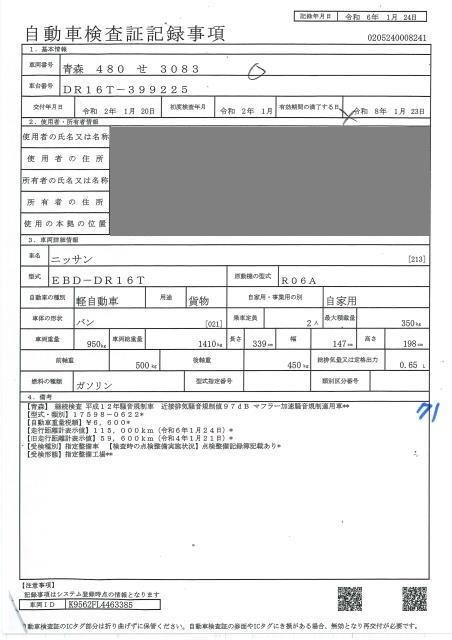 記録年月日 令和 6年 1月 24日
自動車検査証記録事項
0205240008241
1．基本情報
車両番号 青森 480 せ 3083
車台番号 DR16T-399225
交付年月日 令和 2年 1月 20日 初度検査年月 令和 2年 1月 有効期間の満了する日 令和 8年 1月 23日
2．使用者・所有者情報
使用者の氏名又は名称
使用者の住所
所有者の氏名又は名称
所有者の住所
使用の本拠の位置
3．車両詳細情報
車名 ニッサン [213]
型式 EBD-DR16T 原動機の型式 R06A
自動車の種別 軽自動車 用途 貨物 自家用・事業用の別 自家用
車体の形状 バン [021] 乗車定員 2人 最大積載量 350kg
車両重量 950kg 車両総重量 1410kg 長さ 339cm 幅 147cm 高さ 198cm
前軸重 500kg 後軸重 450kg 総排気量又は定格出力 0.65 L
燃料の種類 ガソリン 型式指定番号 類別区分番号
4．備考
【青森】 継続検査 平成12年騒音規制車 近接排気騒音規制値97dB マフラー加速騒音規制適用車**
【型式・類別】17598-0622*
【自動車重量税額】¥6,600*
【走行距離計表示値】115,000km（令和6年1月24日）*
【旧走行距離計表示値】59,600km（令和4年1月21日）*
【受検種別】指定整備車 【検査時の点検整備実施状況】点検整備記録簿記載あり*
【受検形態】指定整備工場**
71
【注意事項】
記録事項はシステム登録時点の情報となります
車両ID K9562FL4463385
自動車検査証のICタグ部分は折り曲げずに保管ください。自動車検査証の券面やICタグにき損がある場合、無効となり再交付が必要です。